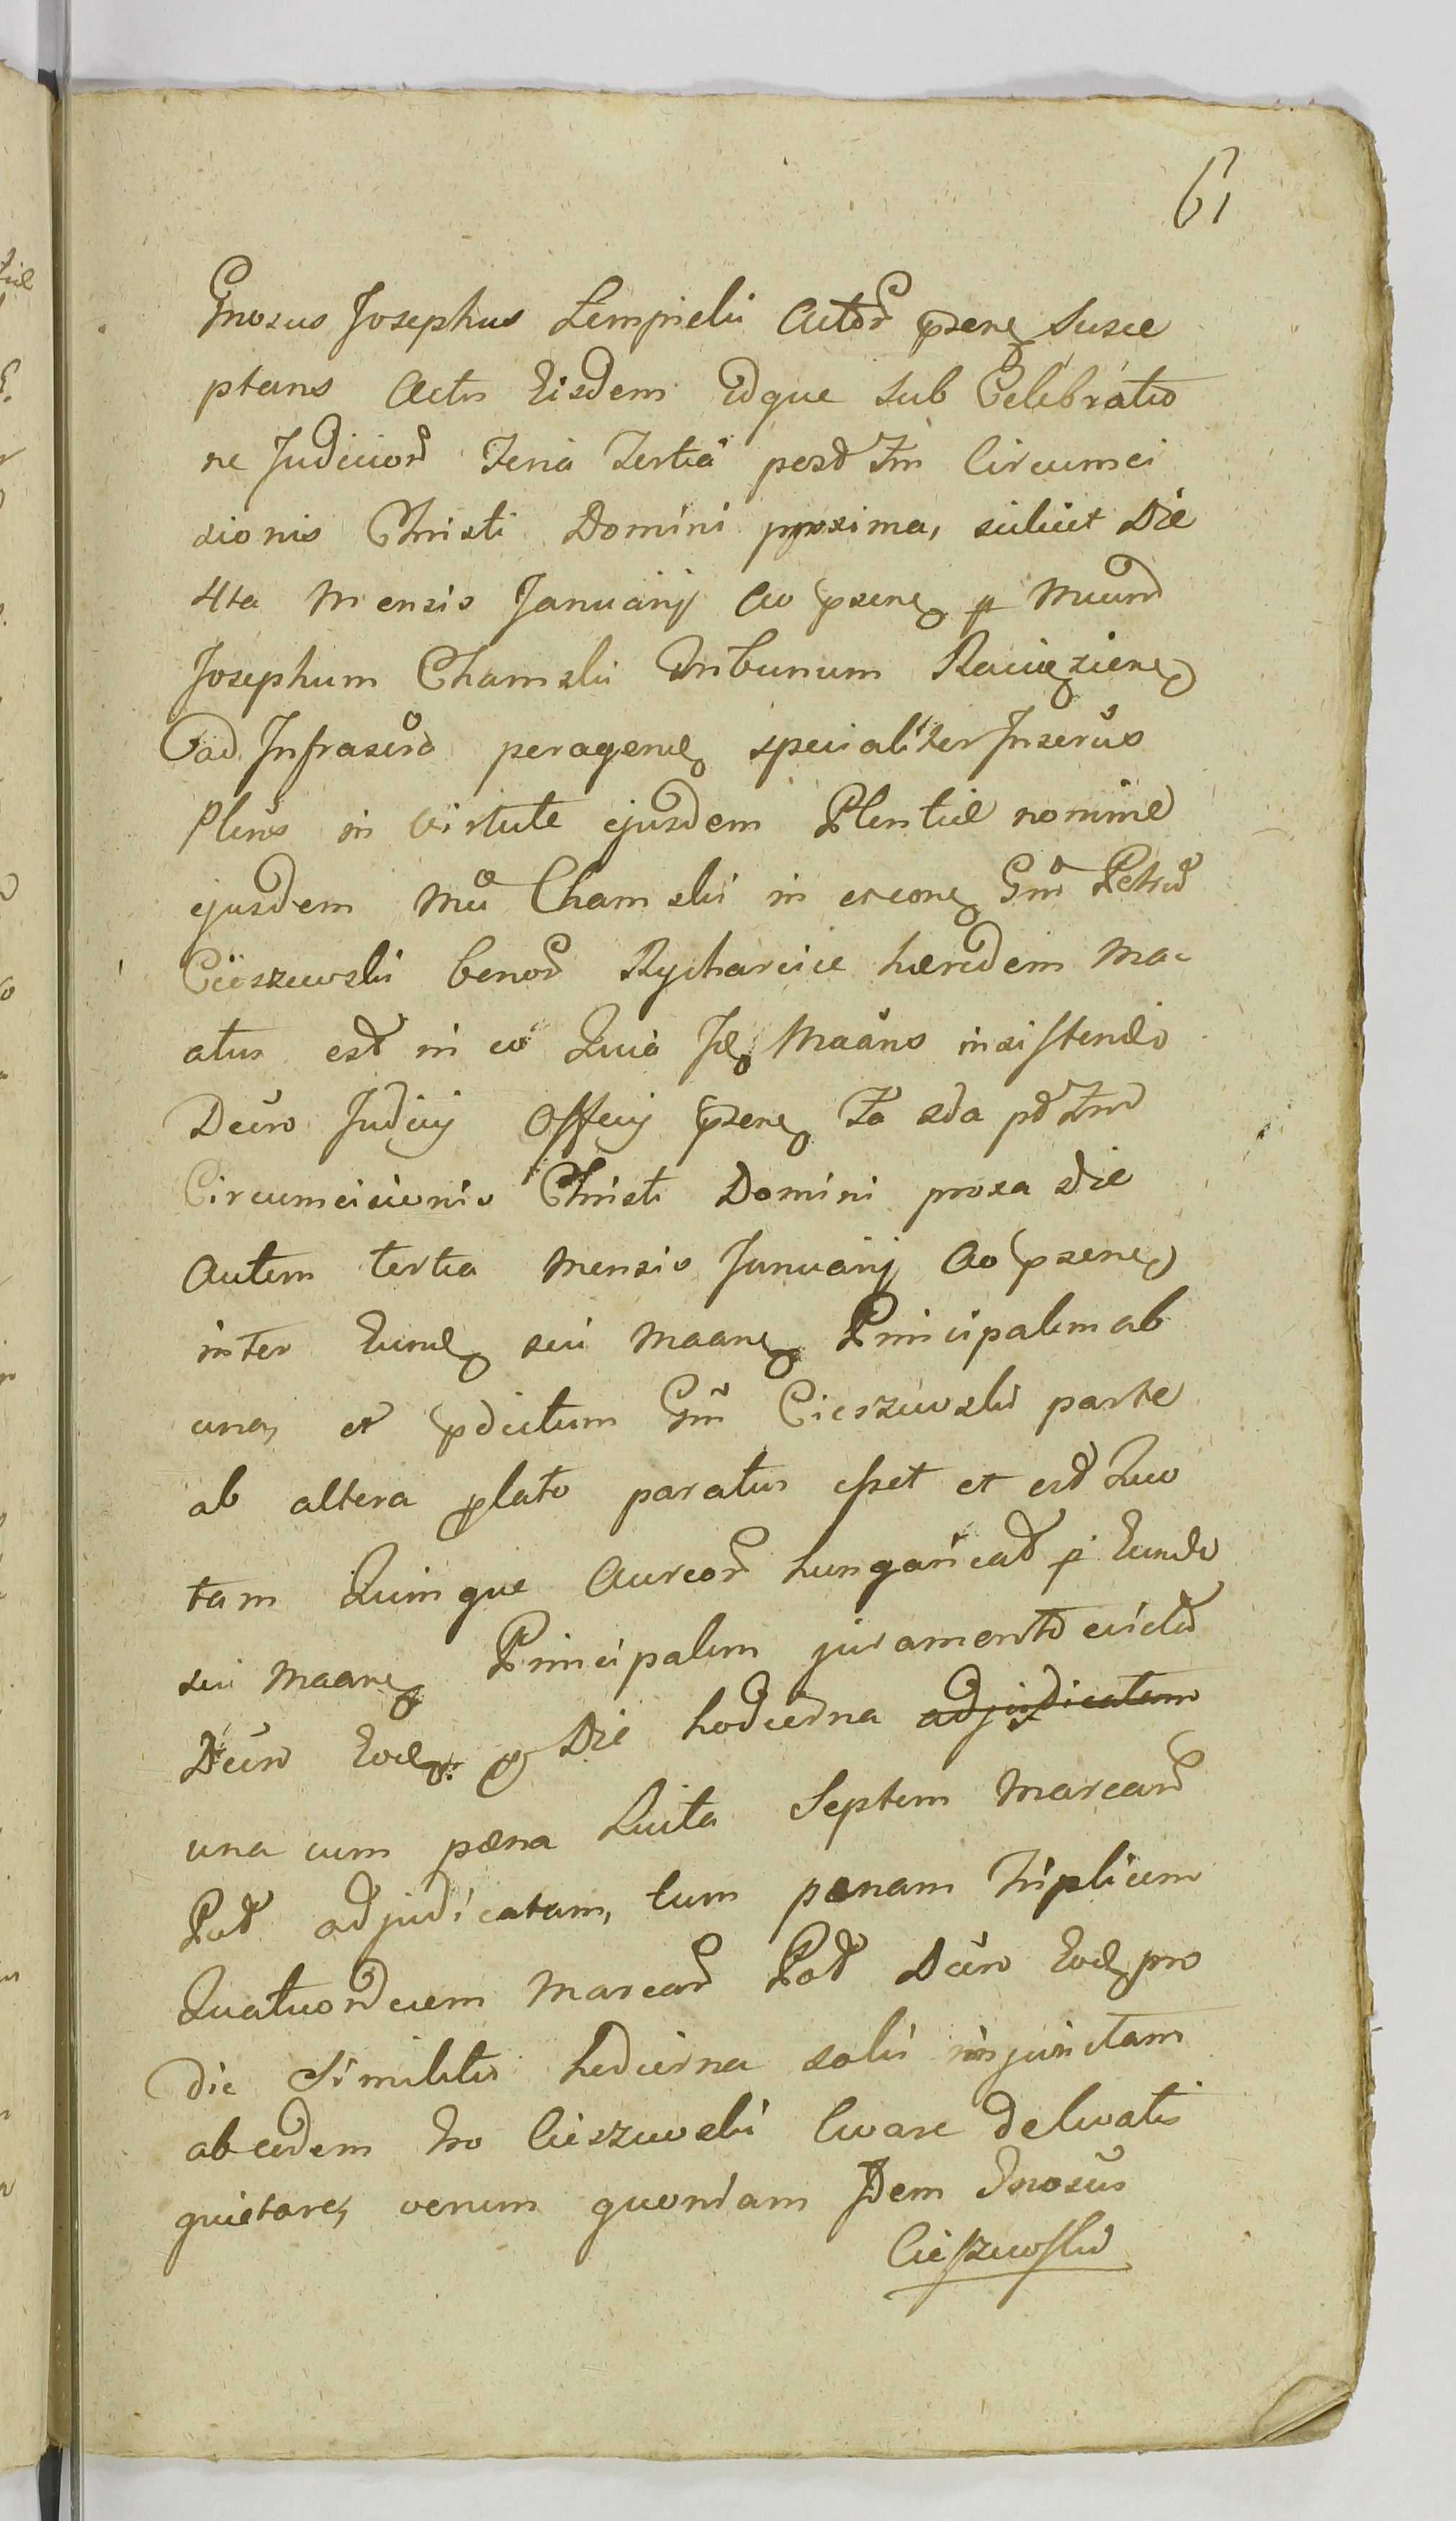 61
Gnosus Josephus Lempicki Actor psene susce
ptans Actis Eisdem idque sub Celebratio
ne Judicior Feria Tertia post Fm Circumci
sionis Christi Domini proxima, scilicet Die
4ta Mensis Januarij Ao psene p Mcum
Josephum Chamski Tribunum Raciążiene
ad Infrascra peragene specialiter Inserus
Plens in virtute ejusdem Plentiae nomine
ejusdem Mci Chamski in Gm Petru
Cieszewski benor Rycharcice haeredem Ma
atus est in eo Quia Maans insistendo
Decro Judicij Officij psene Fa 2da pd Fm
Circumcisionis Christi Domini proxa die
Autem tertia Mensis Januarij Ao psene
inter Eunde sui Maane Principalem ab
una, et pdictum Gm Cieszewski parte
ab altera plato paratus esset et est Quo
tam Quinque Aureor hungaricat p Eunde
sui Maane Principalem juramento evicta
Decro Eode Die hodierna adjudicatam
una cum paena Luita Septem Marcar
Pol adjudicatam, tum paenam triplicem
Quatuordecem Marcar Pol Decro Eode pro
die similiter hodierna solvi injunctam
ab eodem Gro Cieszewski levare delevatis
quietare, verum quoniam Idem Gnosus
Cieszewski